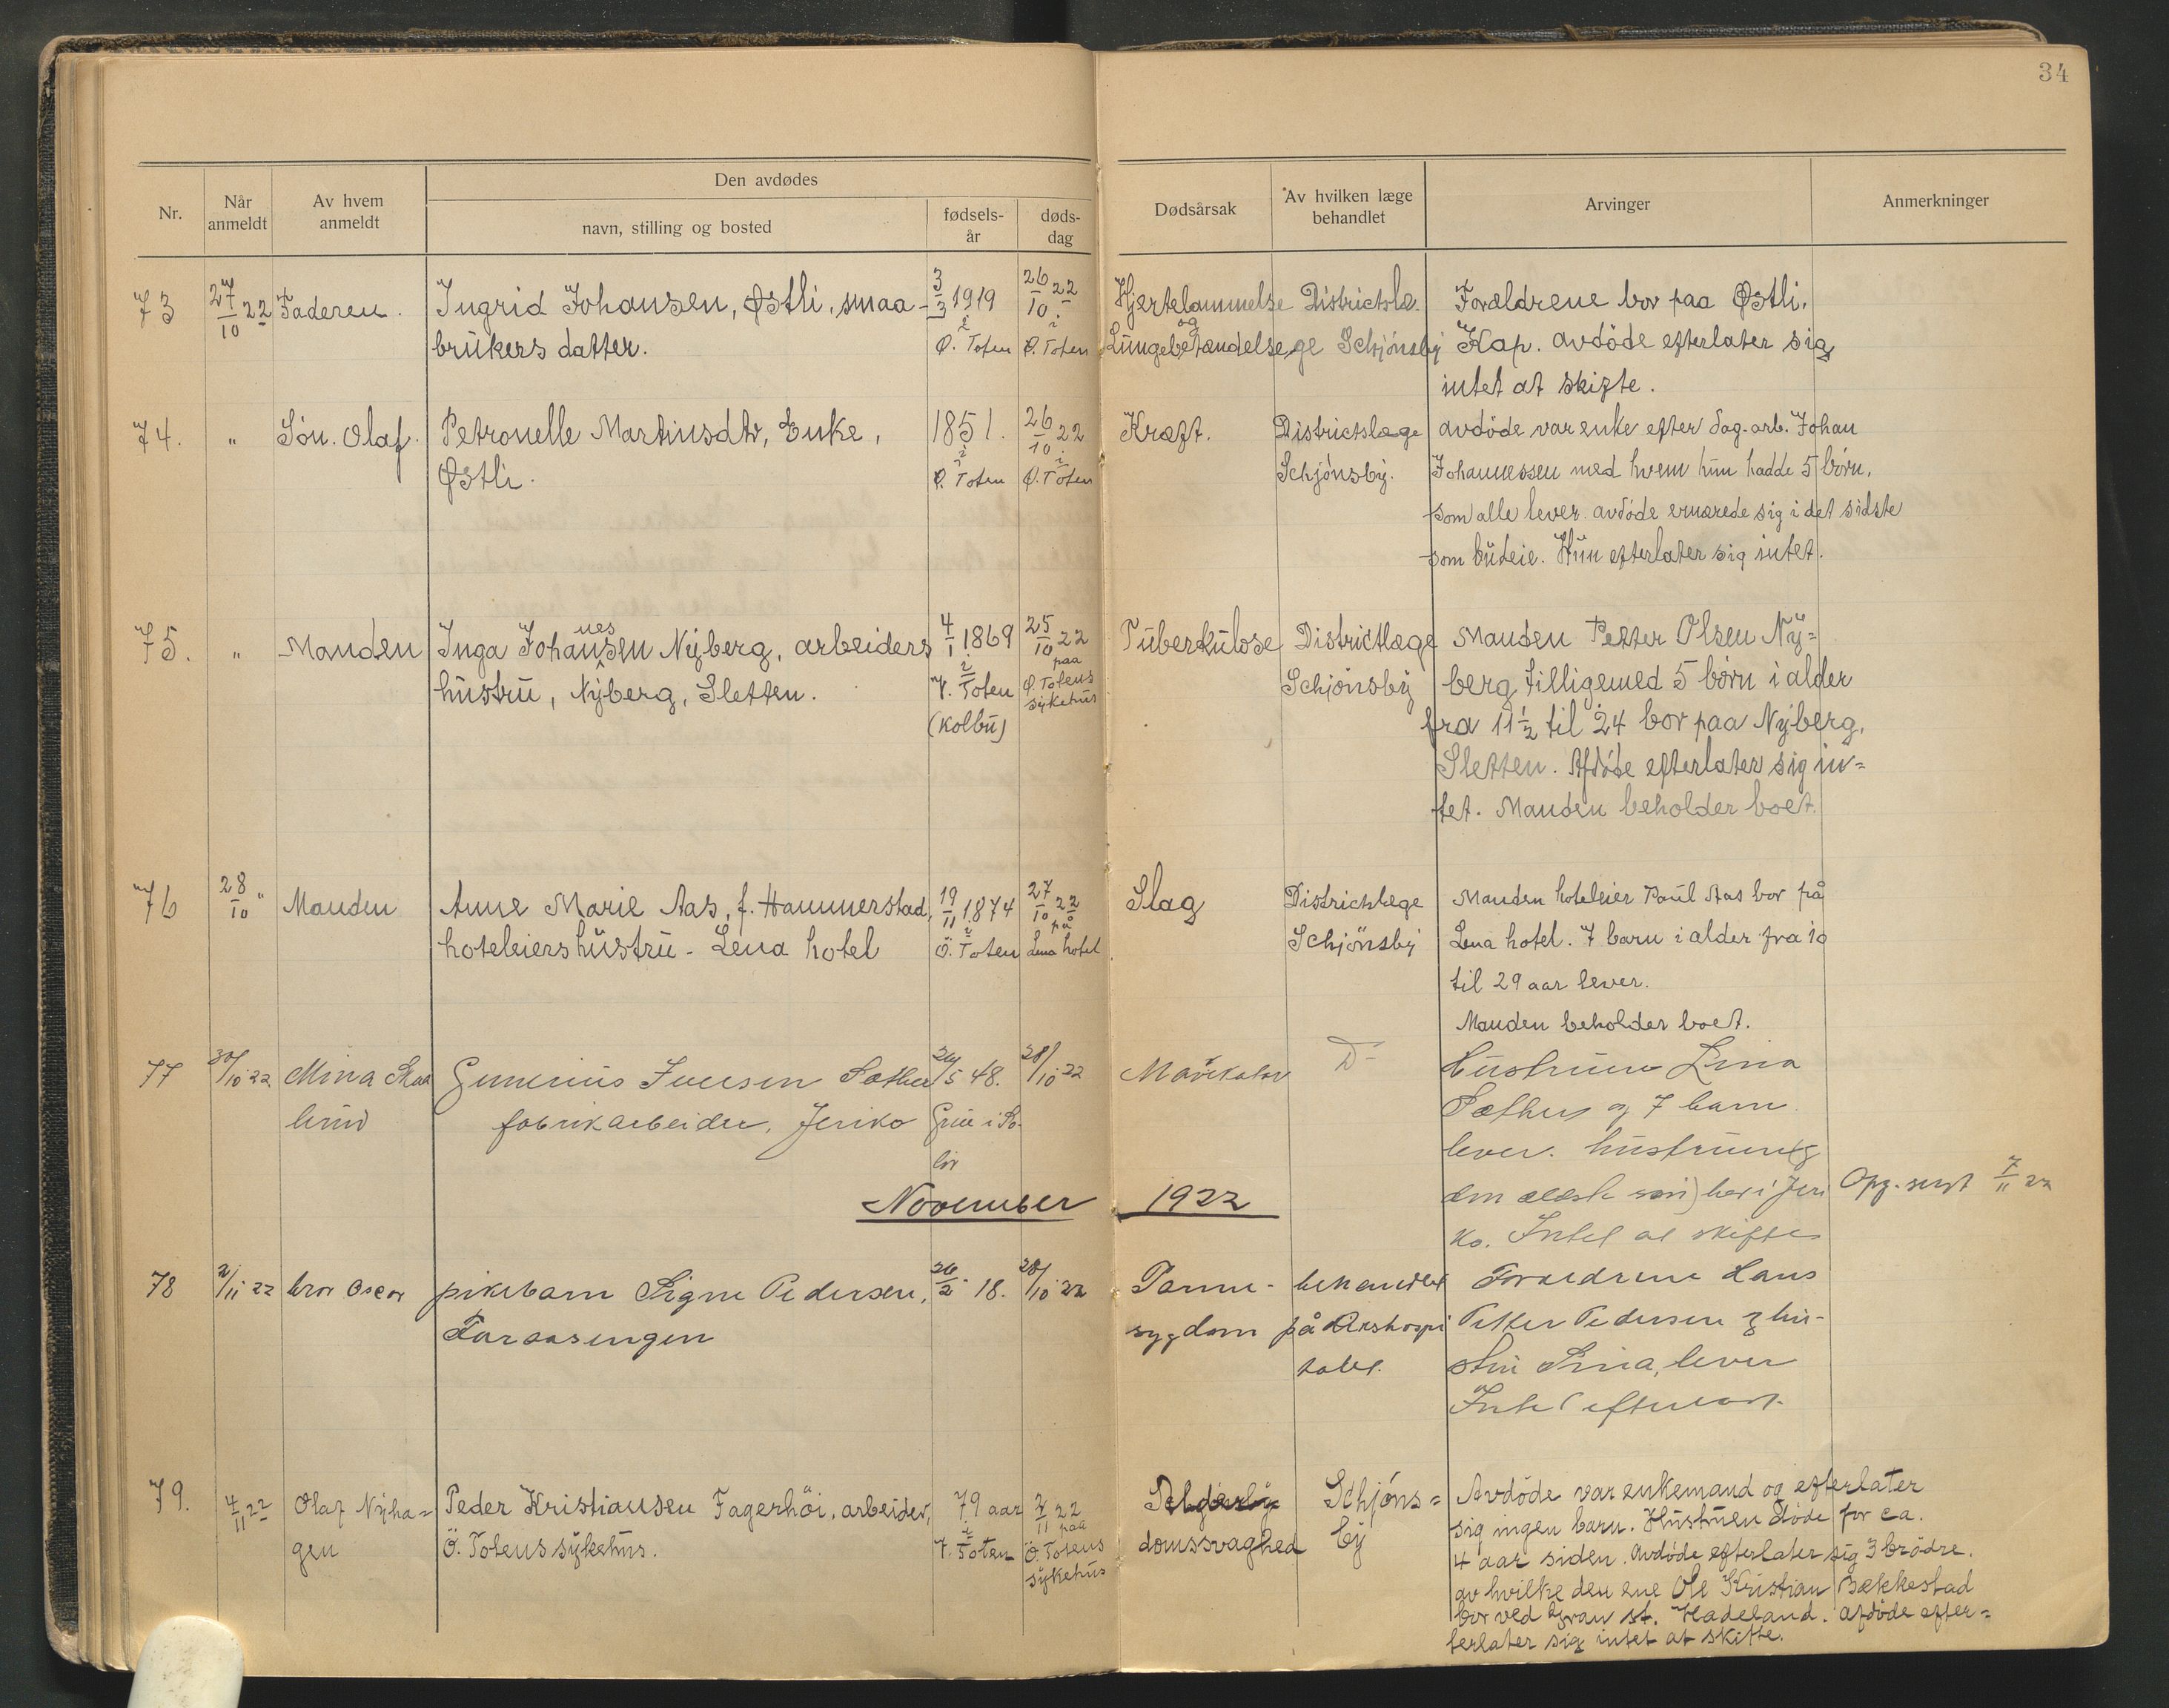 34
Nr.
Når anmeldt
Av hvem anmeldt
Den avdødes
navn, stilling og bosted
fødsels-
år
døds-
dag
Dødsårsak
Av hvilken læge behandlet
Arvinger
Anmerkninger
73
27/10 22
Faderen.
Ingrid Johansen, Østli, smaa-
brukers datter.
3/3 1919
i
Ø. Toten
26/10 22
i
Ø. Toten
Hjertelammelse
og
Lungebetændelse
Districtslæ-
ge Schjønsby
Forældrene bor paa Østli,
Kap. avdöde efterlater sig
intet at skifte.
74.
"
Sön. Olaf.
Petronelle Martinsdtr, Enke,
Østli.
1851.
i
Ø. Toten
26/10 22
i
Ø. Toten
Kræft.
Districtslæge
Schjönsby.
avdöde var enke efter dag. arb. Johan
Johannessen med hvem hun hadde 5 börn,
som alle lever. avdöde ernærede sig i det sidste
som budeie. Hun efterlater sig intet.
75.
"
Manden
nes
Inga Johansen Nyberg, arbeiders
hustru, Nyberg, Sletten.
4/1 1869
i
V. Toten
(Kolbu)
25/10 22
paa
Ø. Totens
sykehus
Tuberkulose
Districtlæge
Schjönsby
Manden Petter Olsen Ny=
berg tilligemed 5 börn i alder
fra 11½ til 24 bor paa Nyberg,
Sletten. Afdöde efterlater sig in=
tet. Manden beholder boet.
76
28/10 "
Manden
Anne Marie Aas, f. Hammerstad,
hoteleiers hustru - Lena hotel
19/11 1874
i
Ö. Toten
27/10 22
på
Lena hotel
Slag
Districtslege
Schjönsby
Manden hoteleier Paul Aas bor på
Lena hotel. 7 barn i alder fra 10
til 29 aar lever.
Manden beholder boet.
77
30/10 22
Mina Skaa
lerud
Gunerius Iversen Sæther
fabrikarbeider, Jeriko
/5 48.
Grue i So-
lör
28/10 22
D-
Hustruen Lina
Sæther og 7 barn
lever. hustruen (og
den ældste sön) bor i Jeri
ko. Intet at skifte
7/11 22
November 1922
78
2/11 22
bror Oscar
pikebarn Signe Pedersen,
Faraasengen
26/2 18.
28/10 22
sygdom
behandlet
på Rikshospi
talet.
Forældrene Hans
Petter Pedersen og hu-
stru Lina, lever
Intet efterlatt.
79.
4/11 22
Olaf Nyha=
gen
Peder Kristiansen Fagerhöi, arbeider,
Ö. Totens sykehus.
79 aar
i
V. Toten
2/11 22
paa
Ö. Totens
sykehus
domssvaghed
Schjöns=
by
Avdöde var enkemand og efterlater
sig ingen barn. Hustruen döde for ca.
4 aar siden. Avdöde efterlater sig 3 brödre.
av hvilke den ene Ole Kristian Bækkestad
bor ved Gran st. Hadeland. Afdöde efter=
terlater sig intet at skifte.